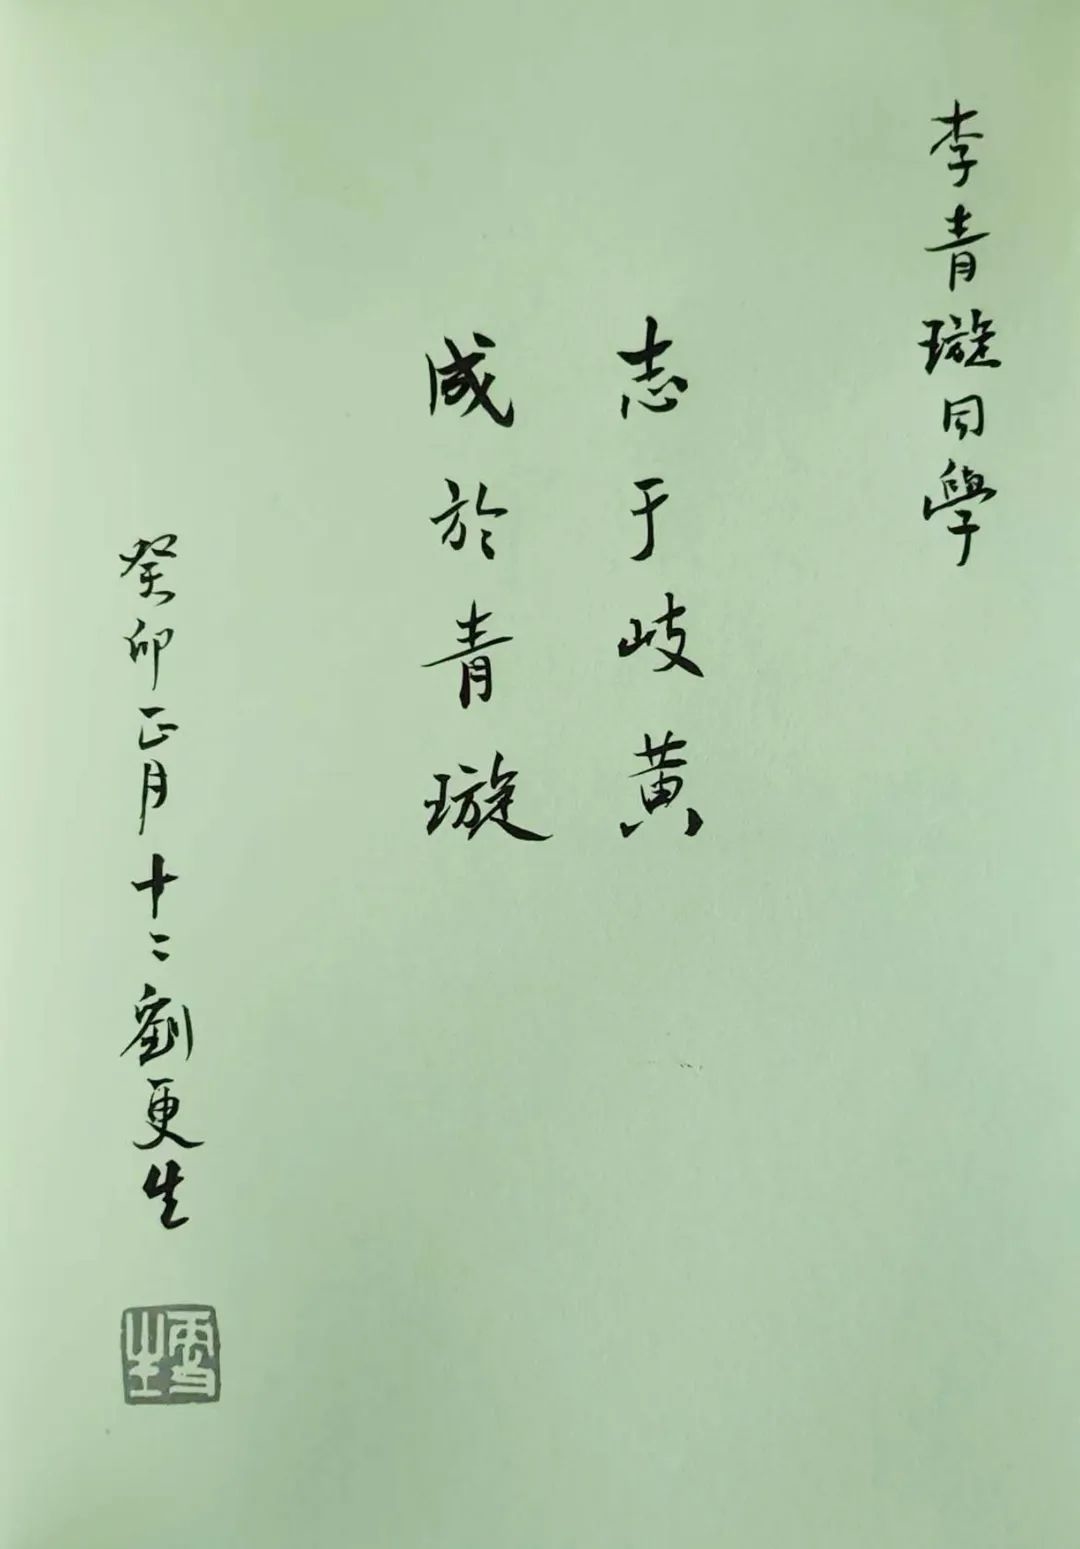 李青璇同學
志于岐黄
成於青璇
癸卯正月十二劉更生
更生